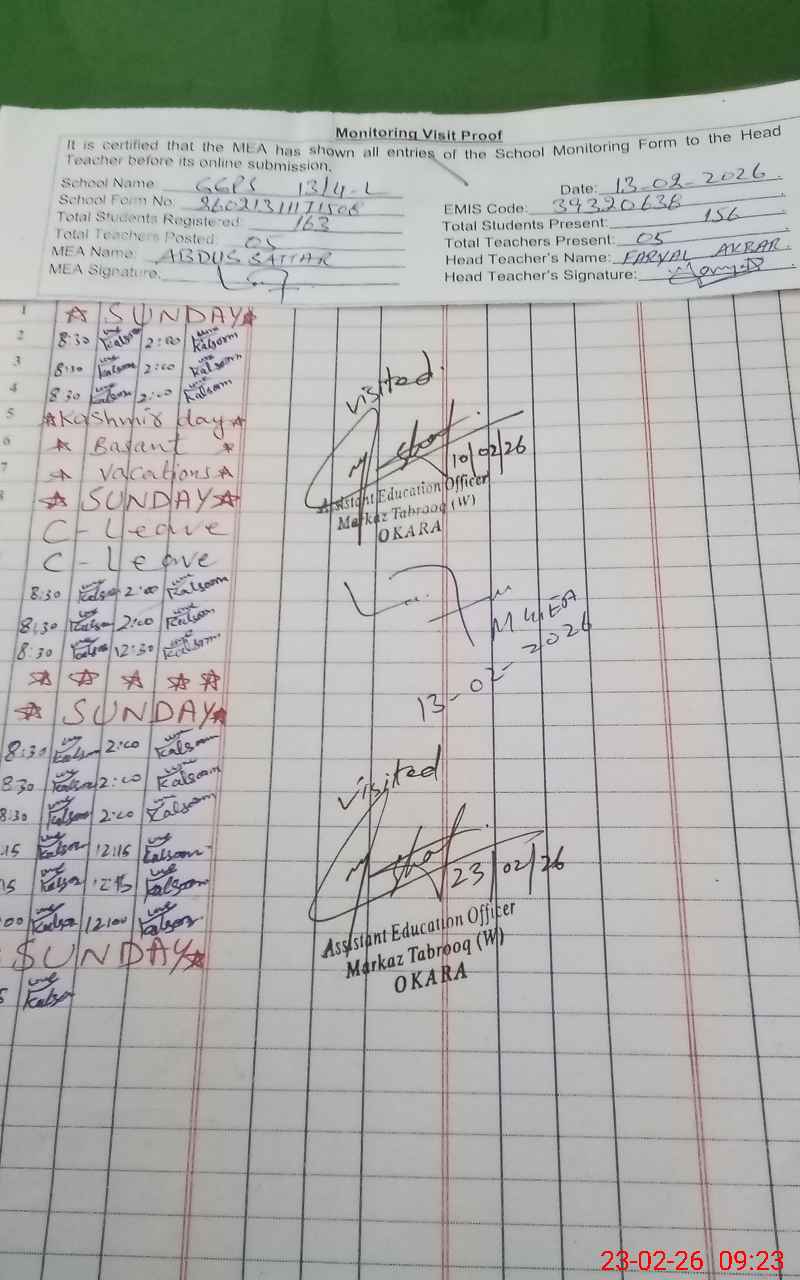 Monitoring Visit Proof
It is certified that the MEA has shown all entries of the School Monitoring Form to the Head
Teacher before its online submission.
School Name GGPS 13/4-L
Date: 13-02-2026
School Form No.
EMIS Code: 39320638
Total Students Registered: 163
Total Students Present: 156
Total Teachers Posted: 05
Total Teachers Present: 05
MEA Name: ABDUS SATTAR
Head Teacher's Name: FARYAL AKBAR
MEA Signature:
Head Teacher's Signature:
1 SUNDAY
2 8:30 Kalsoom 2:00 Kalsoom
3 8:30 Kalsoom 2:00 Kalsoom
4 8:30 Kalsoom 2:00 Kalsoom
5 Kashmir day
6 Basant
7 vacations
8 SUNDAY
C-Leave
C-Leave
8:30 Kalsoom 2:00 Kalsoom
8:30 Kalsoom 2:00 Kalsoom
8:30 Kalsoom 12:30 Kalsoom
SUNDAY
8:30 Kalsoom 2:00 Kalsoom
8:30 Kalsoom 2:00 Kalsoom
8:30 Kalsoom 2:00 Kalsoom
:15 Kalsoom 12:15 Kalsoom
15 Kalsoom 12:15 Kalsoom
:00 Kalsoom 12:00 Kalsoom
SUNDAY
5 Kalsoom
visited
10/02/26
Assistant Education Officer
Markaz Tabrooq (W)
OKARA
13-02-2026
visited
23/02/26
Assistant Education Officer
Markaz Tabrooq (W)
OKARA
23-02-26 09:23